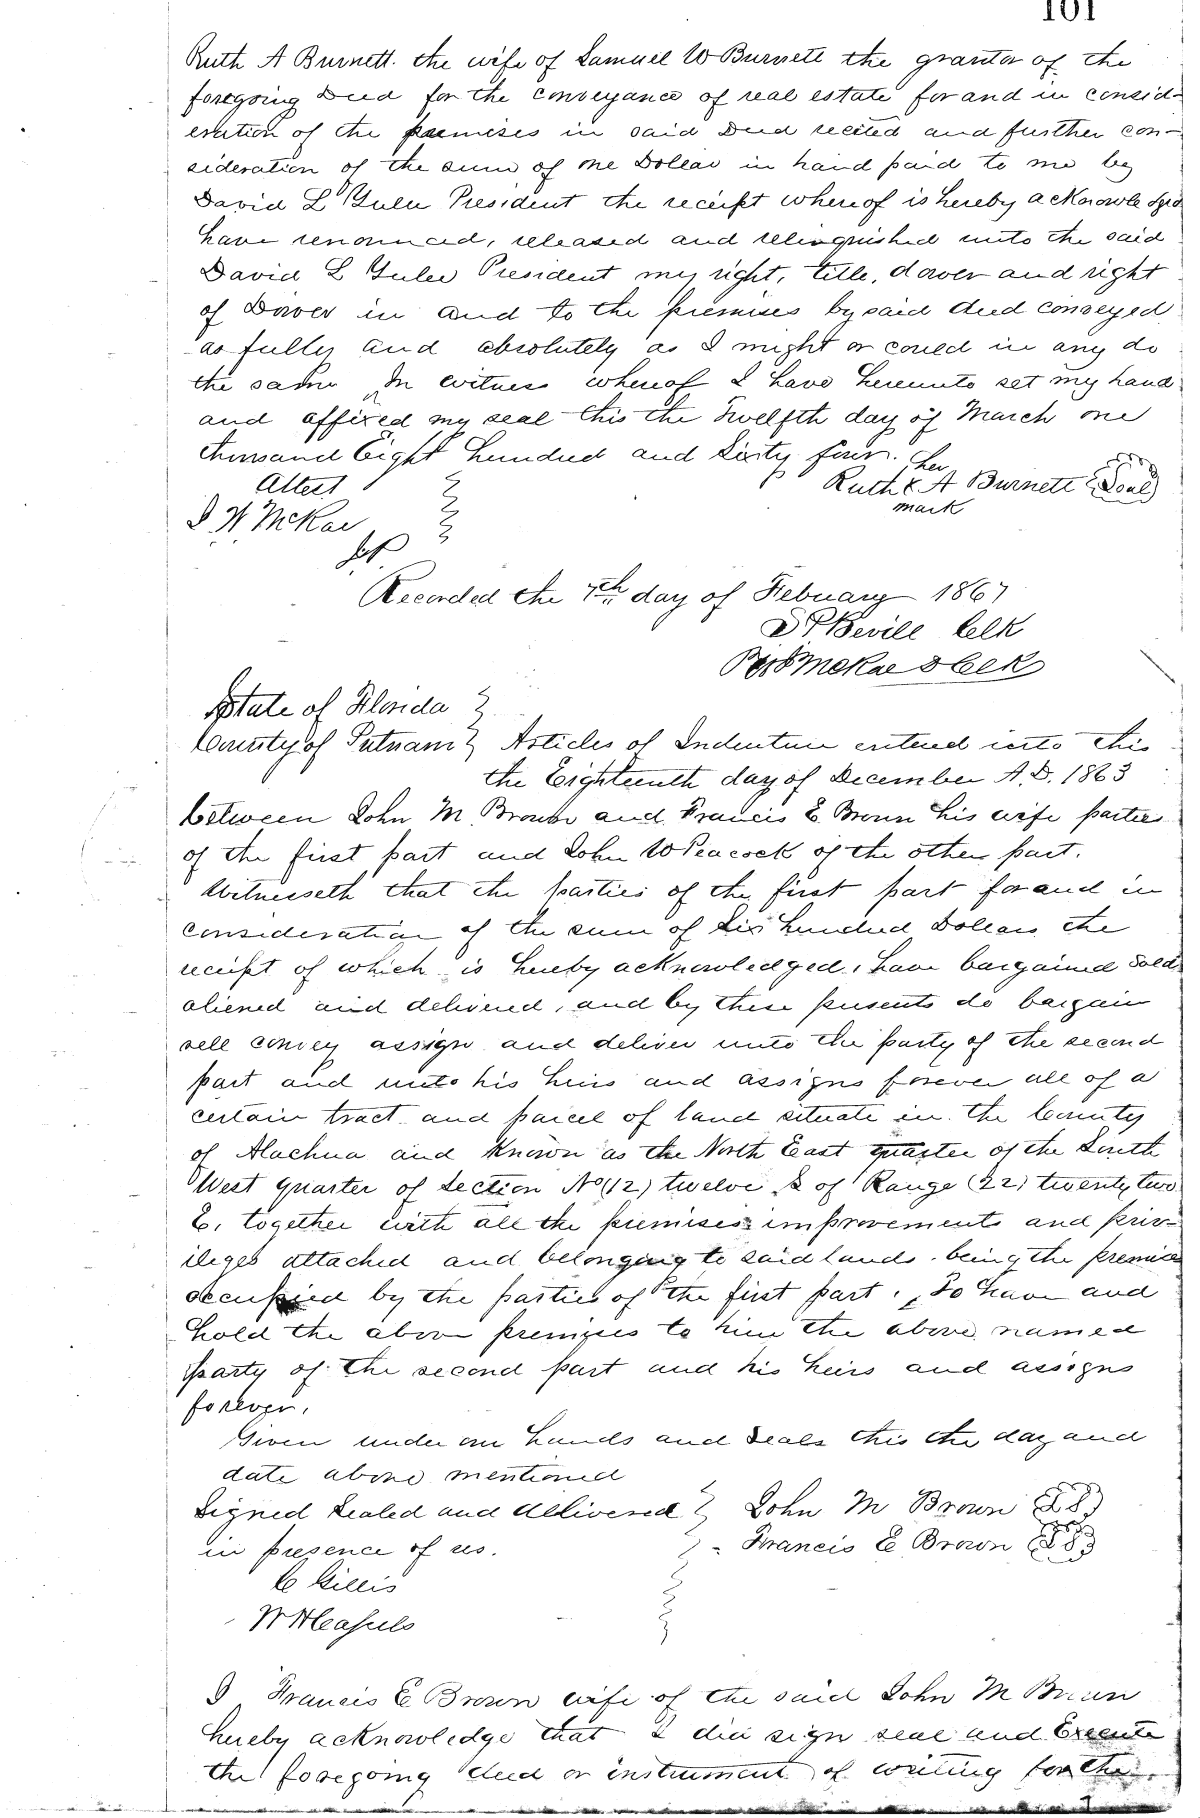 101
Ruth A Burnett. the wife of Samuel W Burnett the grantor of the
foregoing Deed for the conveyance of real estate for and in consid-
eration of the premises in said Deed recited and further con-
sideration of the sum of one Dollar in hand paid to me by
David L Yulee President the receipt whereof is hereby acknowledged
have renounced, released and relinquished unto the said
David L Yulee President my right, title, dower and right
of Dower in and to the premises by said deed conveyed
as fully and absolutely as I might or could in any do
the same In witness whereof I have hereunto set my hand
and affixed my seal this the Twelfth day of March one
thousand Eight hundred and Sixty four. her
Attest Ruth X A Burnett Seal
J W McRae mark
J.P.
Recorded the 7th day of Febuary 1867
Bevill Clk
By McRae D Clk
State of Florida
County of Putnam Articles of Indenture entered into this
the Eighteenth day of December A.D. 1863
between John M Brown and Francis E Brown his wife parties
of the first part and John W Peacock of the other part.
Witnesseth that the parties of the first part for and in
consideration of the sum of Six hundred Dollars the
receipt of which is hereby acknowledged, have bargained sold
aliened and delivered, and by these presents do bargain
sell convey assign and deliver unto the party of the second
part and unto his heirs and assigns forever all of a
certain tract and parcel of land situate in the County
of Alachua and Known as the North East quarter of the South
West quarter of Section No (12) twelve S of Range (22) twenty two
E, together with all the premises improvements and priv-
ileges attached and belonging to said lands. being the premises
occupied by the parties of the first part. To have and
hold the above premises to him the above named
party of the second part and his heirs and assigns
forever.
Given under our hands and seals this the day and
date above mentioned
Signed Sealed and delivered John M Brown LS
in presence of us. Francis E Brown LS
C Gillis
I Francis E Brown wife of the said John M Brown
hereby acknowledge that I did sign seal and Execute
the foregoing deed or instrument of writing for the